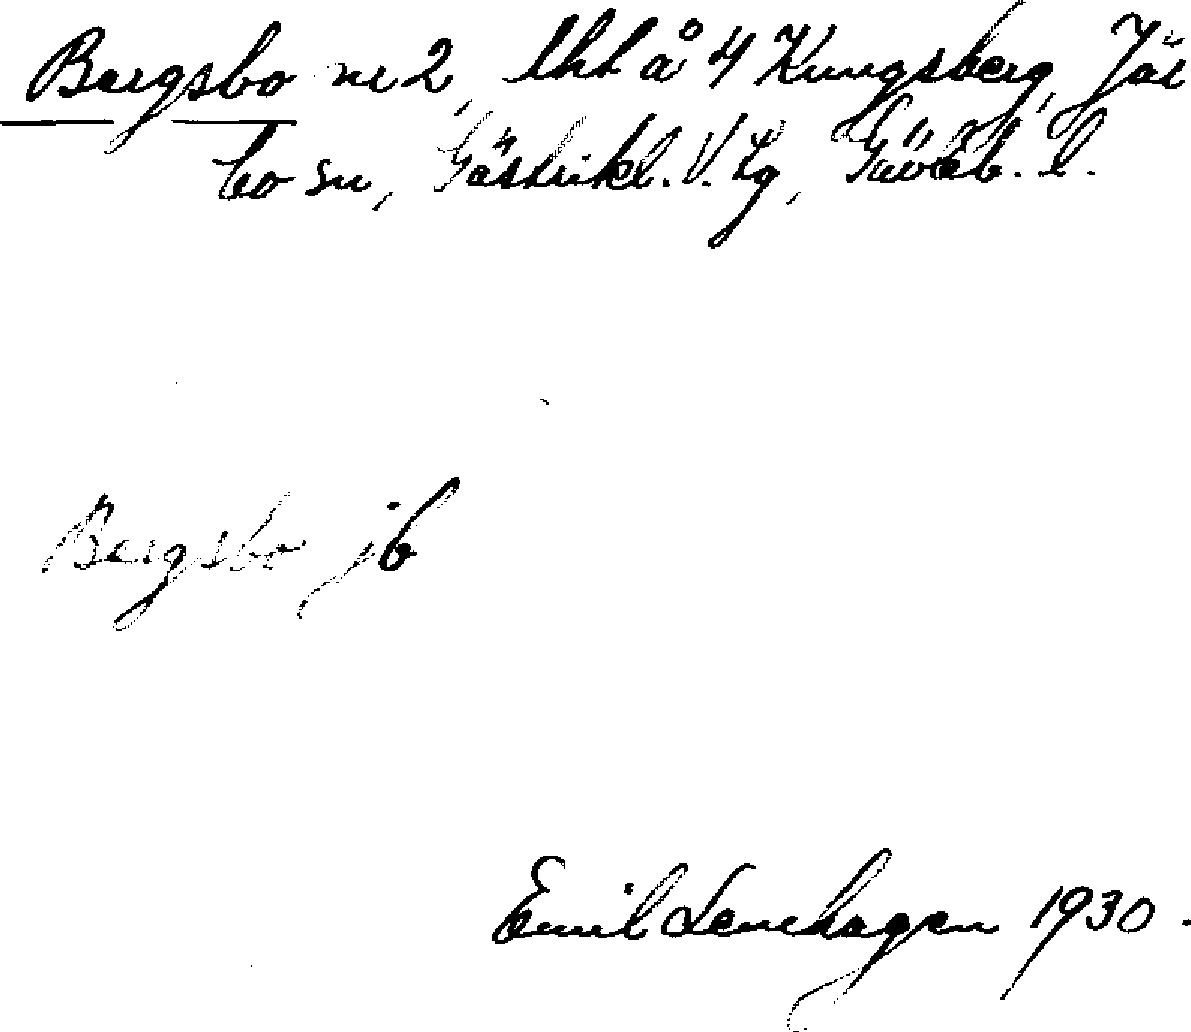 Bergsbo nr 2, lht å 4 Kungsberg, Jär
bo sn, Gästrikl. V. tg, Gävleb. l.
Bergsbo jb
Emil Lenhagen 1930.